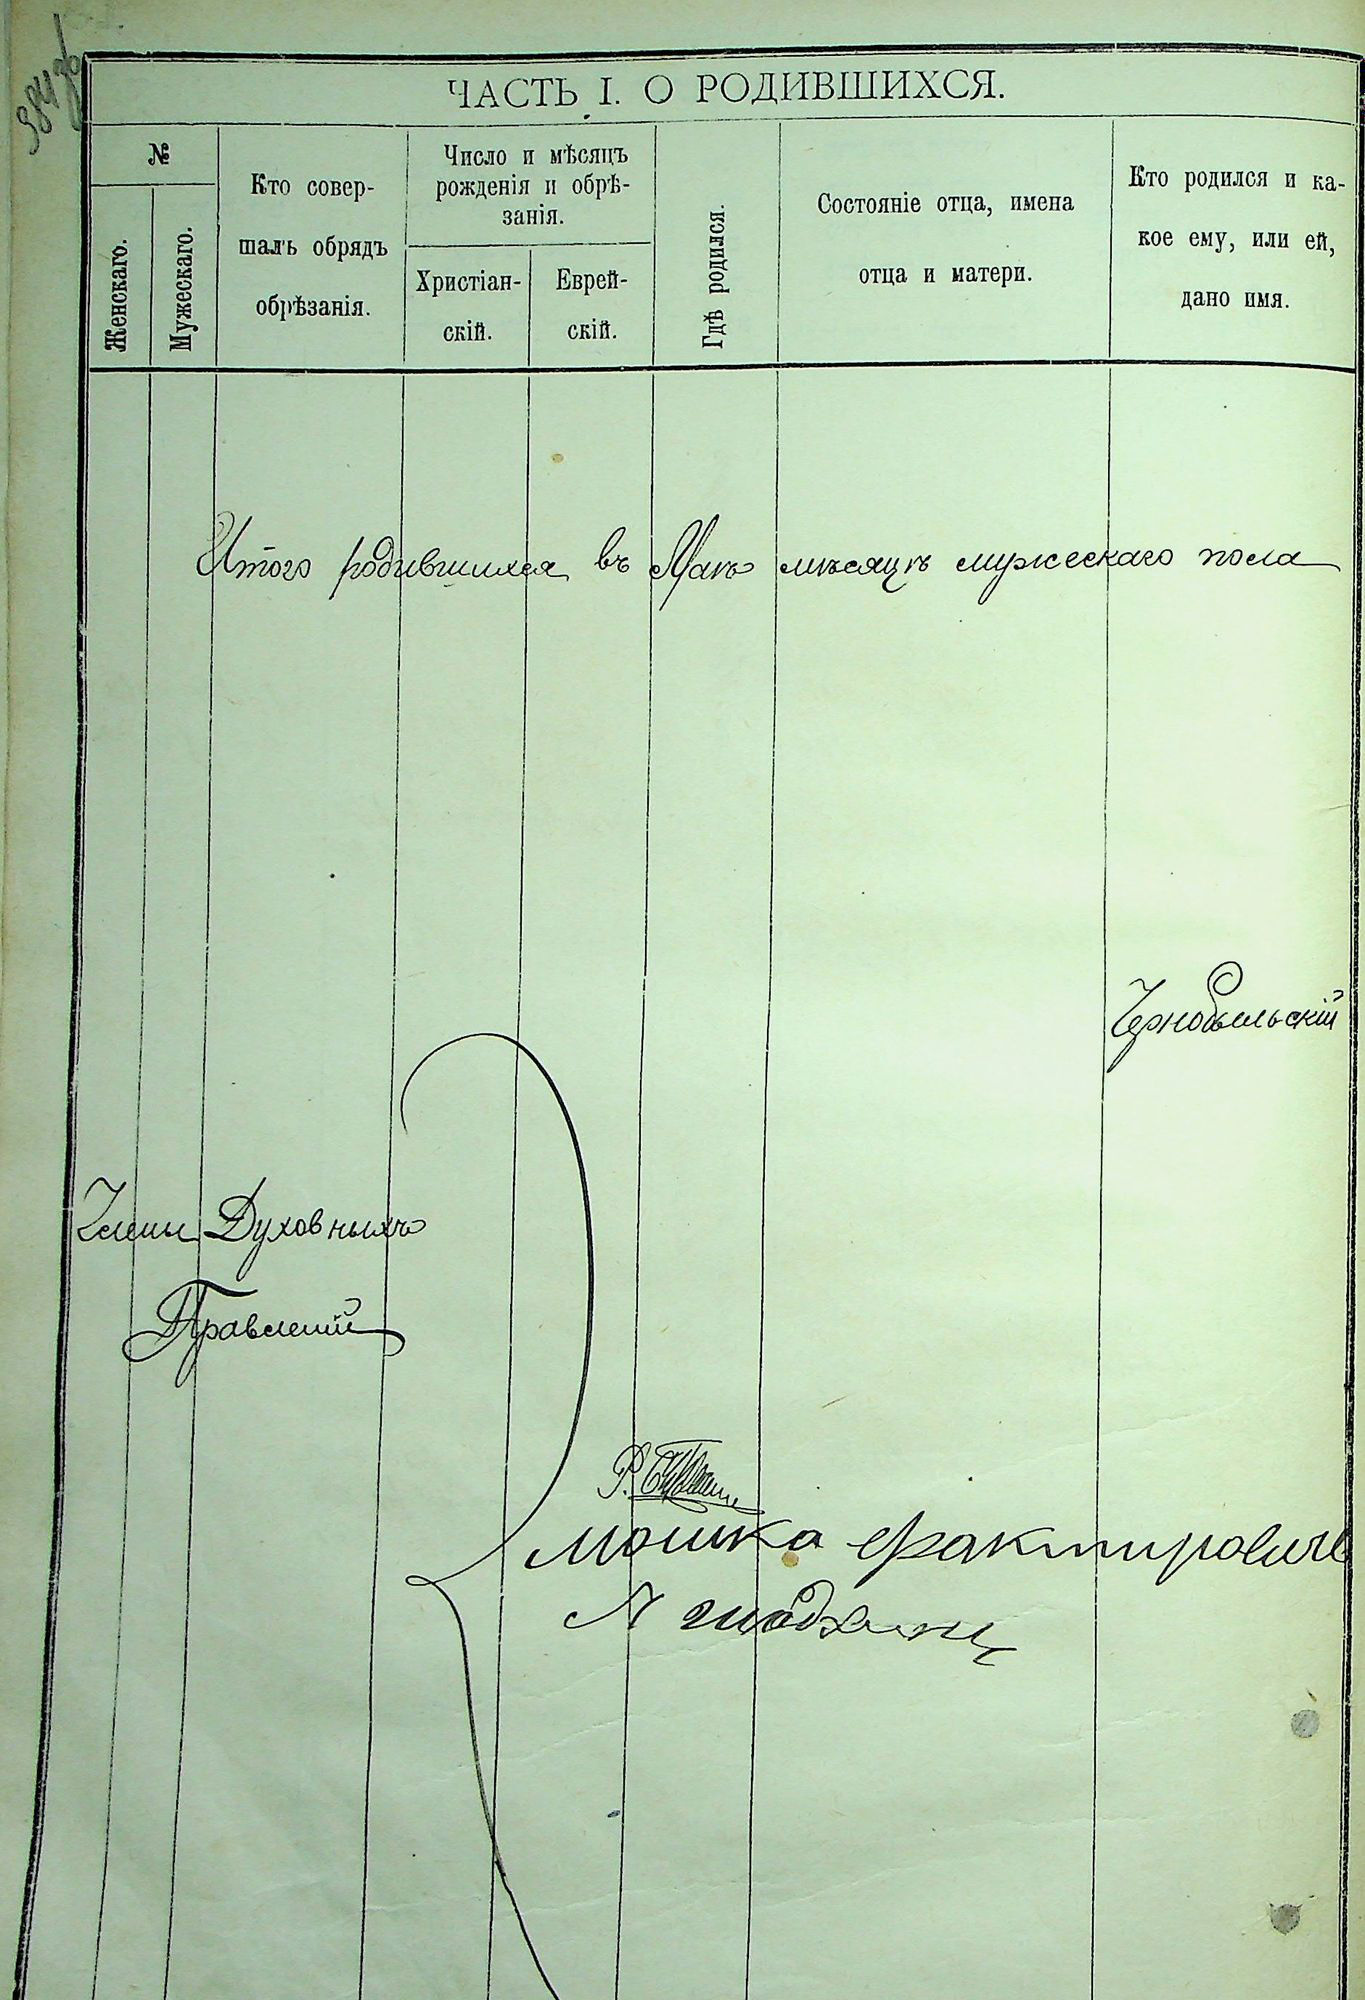 ЧАСТЬ I. О РОДИВШИХСЯ.
№
Женскаго.
Мужескаго.
Кто совер-
шалъ обрядъ
обрѣзанія.
Число и мѣсяцъ
рожденія и обрѣ-
занія.
Христіан-
скій.
Еврей-
скій.
Гдѣ родился.
Состояніе отца, имена
отца и матери.
Кто родился и ка-
кое ему, или ей,
дано имя.
Итого родившихся въ Маѣ мѣсяцѣ мужескаго пола
Чернобыльскій
Члены Духовныхъ
Правленій
Р.
Мошка Фактирович